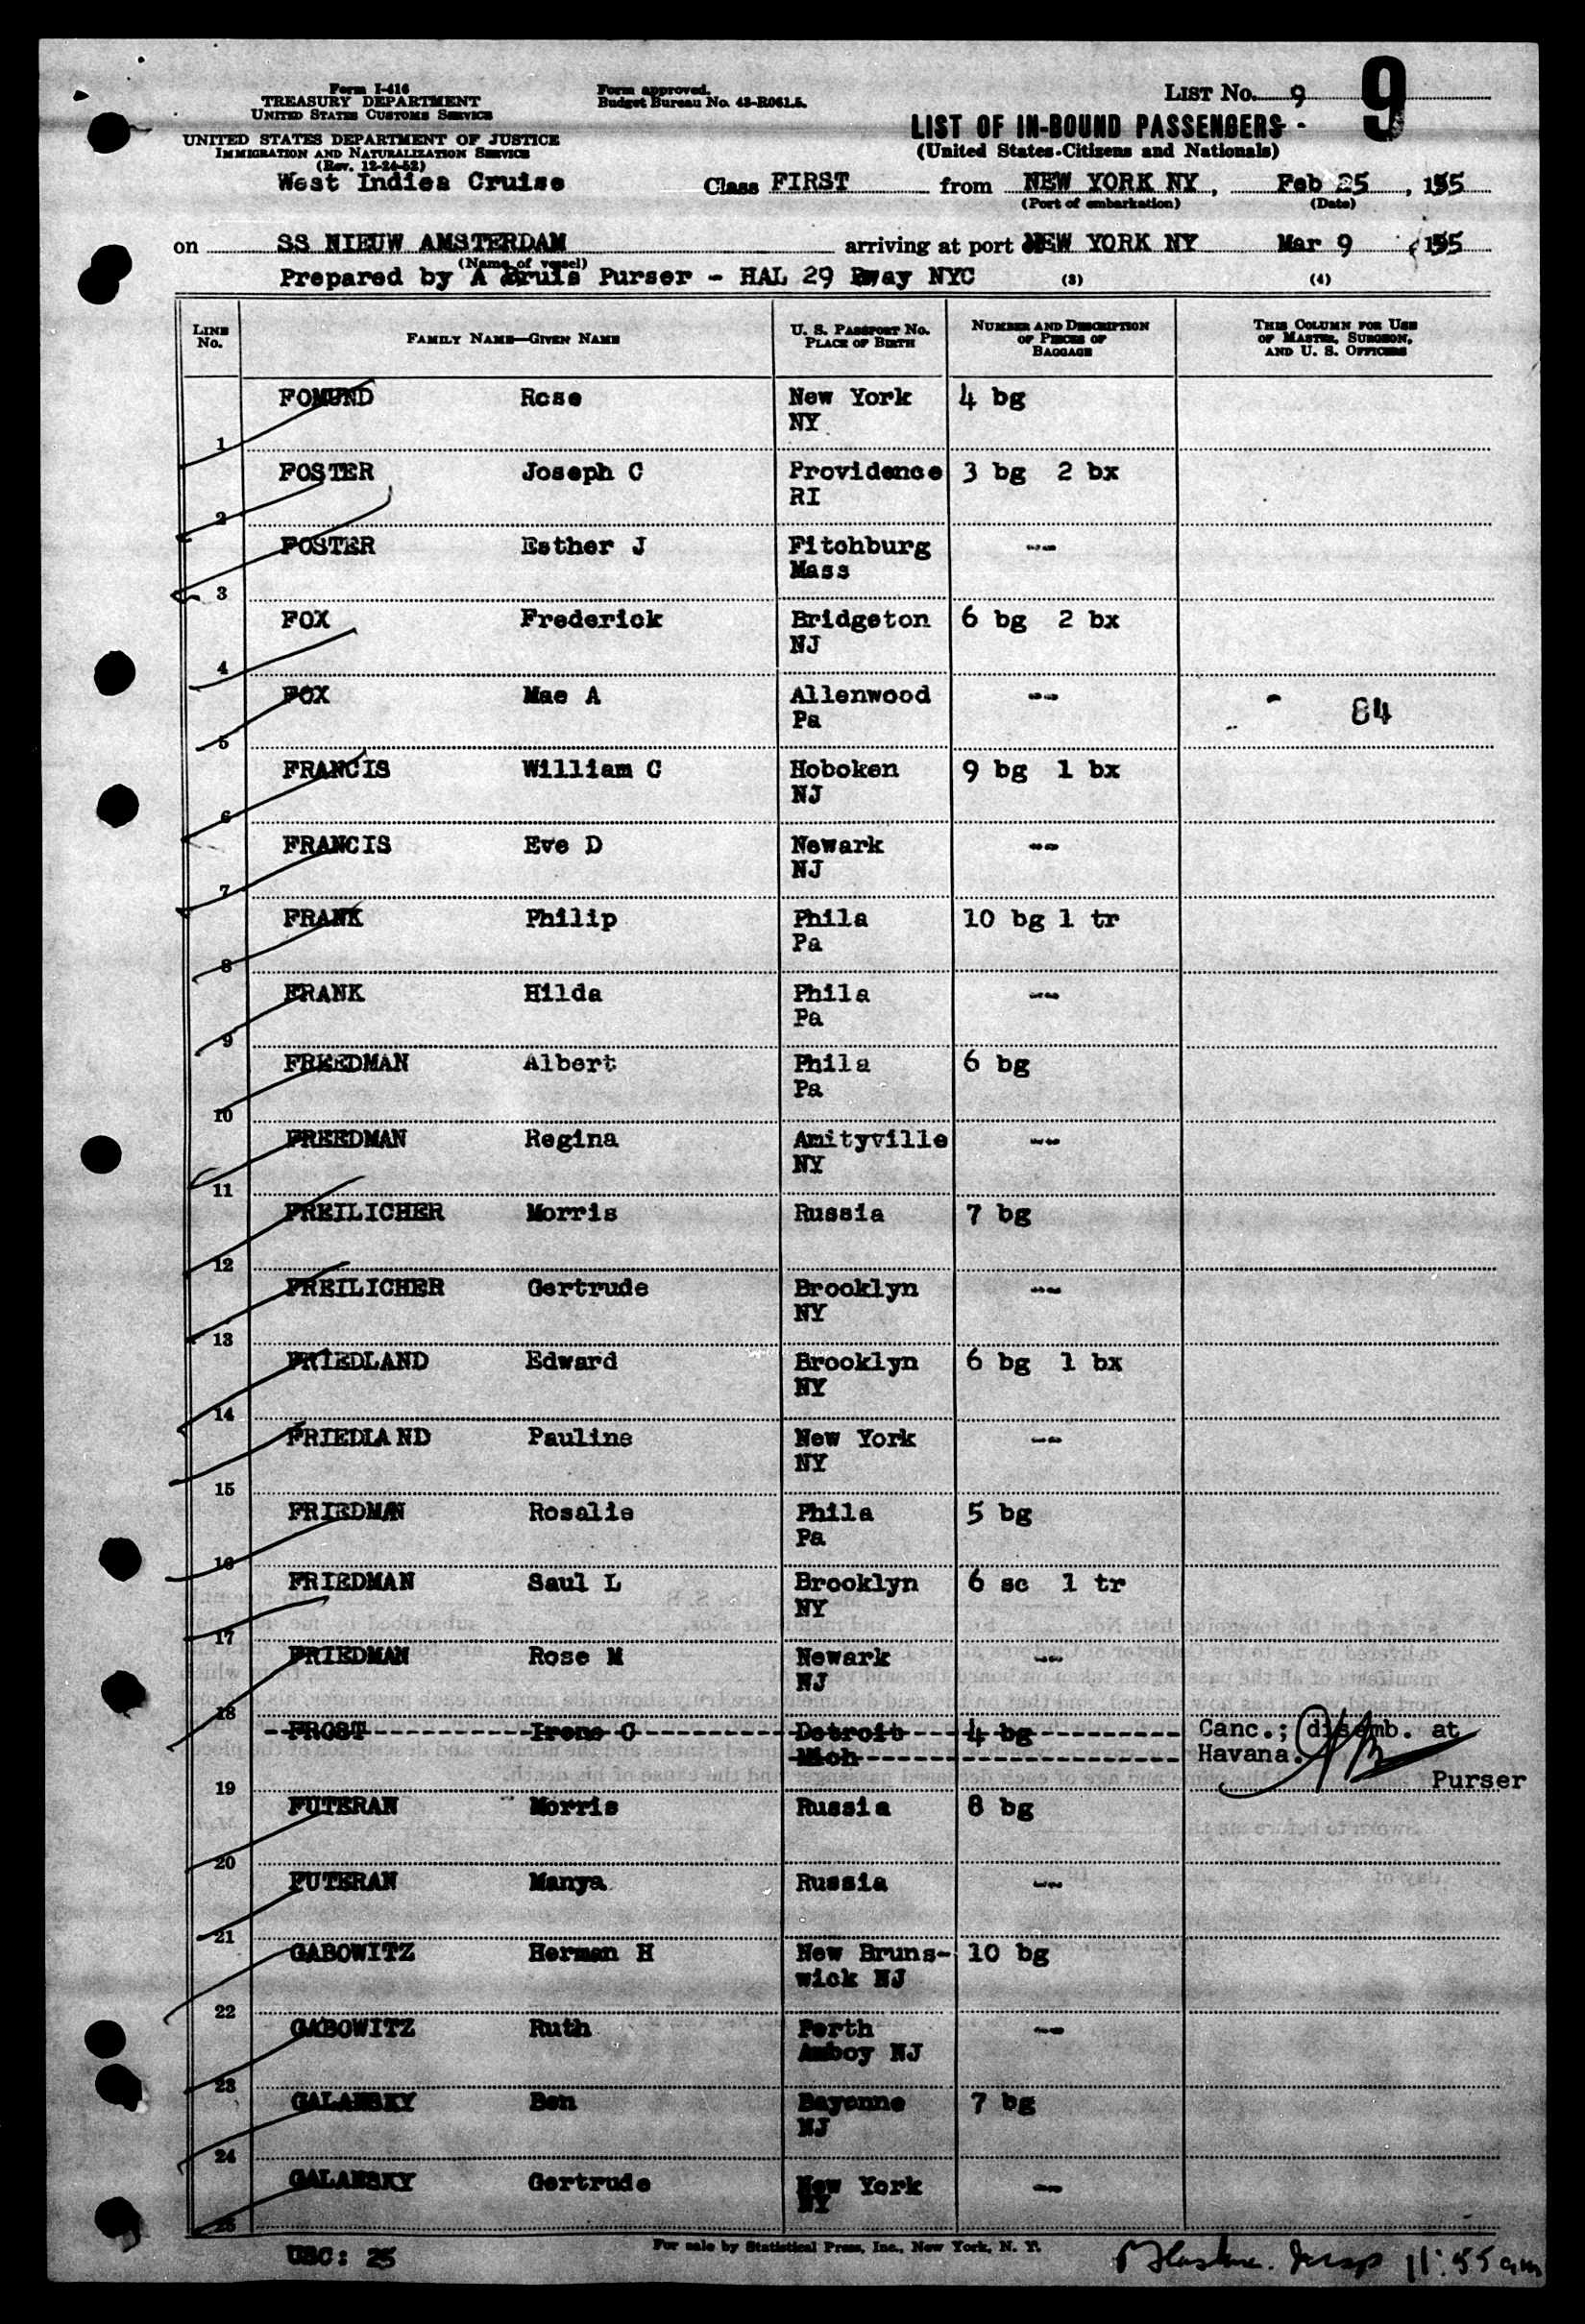 Form I-416
TREASURY DEPARTMENT
UNITED STATES CUSTOMS SERVICE
UNITED STATES DEPARTMENT OF JUSTICE
IMMIGRATION AND NATURALIZATION SERVICE
(Rev. 12-24-52)
Form approved.
Budget Bureau No. 43-R061.5.
LIST No. 9
9
LIST OF IN-BOUND PASSENGERS
(United States Citizens and Nationals)
West Indies Cruise Class FIRST from NEW YORK NY, Feb 25, 1955
(Port of embarkation) (Date)
on SS NIEUW AMSTERDAM arriving at port NEW YORK NY Mar 9, 1955
(Name of vessel)
Prepared by A Bruls Purser - HAL 29 Bway NYC (3) (4)
LINE No. FAMILY NAME—GIVEN NAME U. S. PASSPORT No. PLACE OF BIRTH NUMBER AND DESCRIPTION OF PIECES OF BAGGAGE THIS COLUMN FOR USE OF MASTER, SURGEON, AND U. S. OFFICERS
FOMUND Rose New York 4 bg
NY
1
FOSTER Joseph C Providence 3 bg 2 bx
RI
2
FOSTER Esther J Fitchburg --
Mass
3
FOX Frederick Bridgeton 6 bg 2 bx
NJ
4
FOX Mae A Allenwood --
Pa 84
5
FRANCIS William C Hoboken 9 bg 1 bx
NJ
6
FRANCIS Eve D Newark --
NJ
7
FRANK Philip Phila 10 bg 1 tr
Pa
8
FRANK Hilda Phila --
Pa
9
FREEDMAN Albert Phila 6 bg
Pa
10
FREEDMAN Regina Amityville --
NY
11
FREILICHER Morris Russia 7 bg
12
FREILICHER Gertrude Brooklyn --
NY
13
FRIEDLAND Edward Brooklyn 6 bg 1 bx
NY
14
FRIEDLAND Pauline New York --
NY
15
FRIEDMAN Rosalie Phila 5 bg
Pa
16
FRIEDMAN Saul L Brooklyn 6 sc 1 tr
NY
17
FRIEDMAN Rose M Newark --
NJ
18
FROST Irene C Detroit 4 bg Canc.; disemb. at
Mich Havana.
Purser
19
FUTERAN Morris Russia 8 bg
20
FUTERAN Manya Russia --
21
GABOWITZ Herman H New Bruns- 10 bg
wick NJ
22
GABOWITZ Ruth Perth --
Amboy NJ
23
GALANSKY Ben Bayonne 7 bg
NJ
24
GALANSKY Gertrude New York --
NY
25
USC: 25
For sale by Statistical Press, Inc., New York, N. Y.
11:55 am